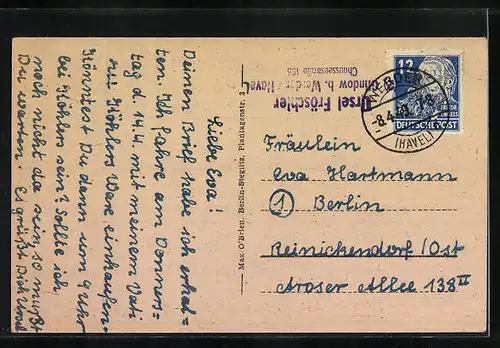 Liebe Eva!
Deinen Brief habe ich erhal=
ten. Ich fahre am Donners=
tag d. 14.4. mit meinem Vati
zu Köhlers Ware einkaufen.
Könntest Du dann um 9 Uhr
bei Köhlers sein? Sollte ich
noch nicht da sein, so mußt
Du warten. Es grüßt Dich Ursel
Max O'Brien, Berlin-Steglitz, Plantagenstr. 3
Ursel Fröschter
Glindow b. Werder / Havel
Chausseestraße 185
12
DEUTSCHE POST
-8.4.
(HAVEL)
Fräulein
Eva Hartmann
1 Berlin
Reinickendorf/Ost
Aroser Allee 138 II